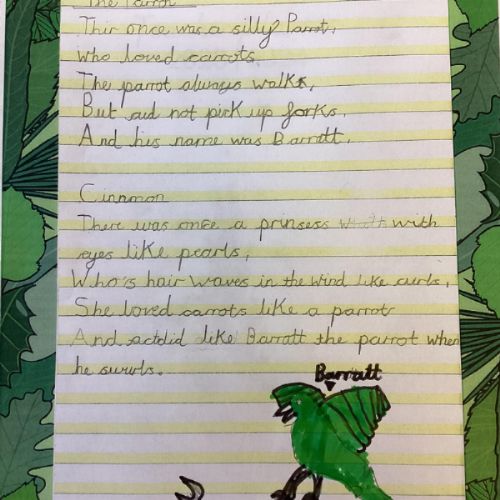 The Parrot
Thir once was a silly Parrot,
who loved carrots.
The parrot always walks,
But did not pick up forks.
And his name was Barratt.
Cinnmon
There was once a prinsess with
eyes like pearls,
Who's hair waves in the wind like curls,
She loved carrots like a parrot
And actdid like Barratt the parrot when
he swirls.
Barratt